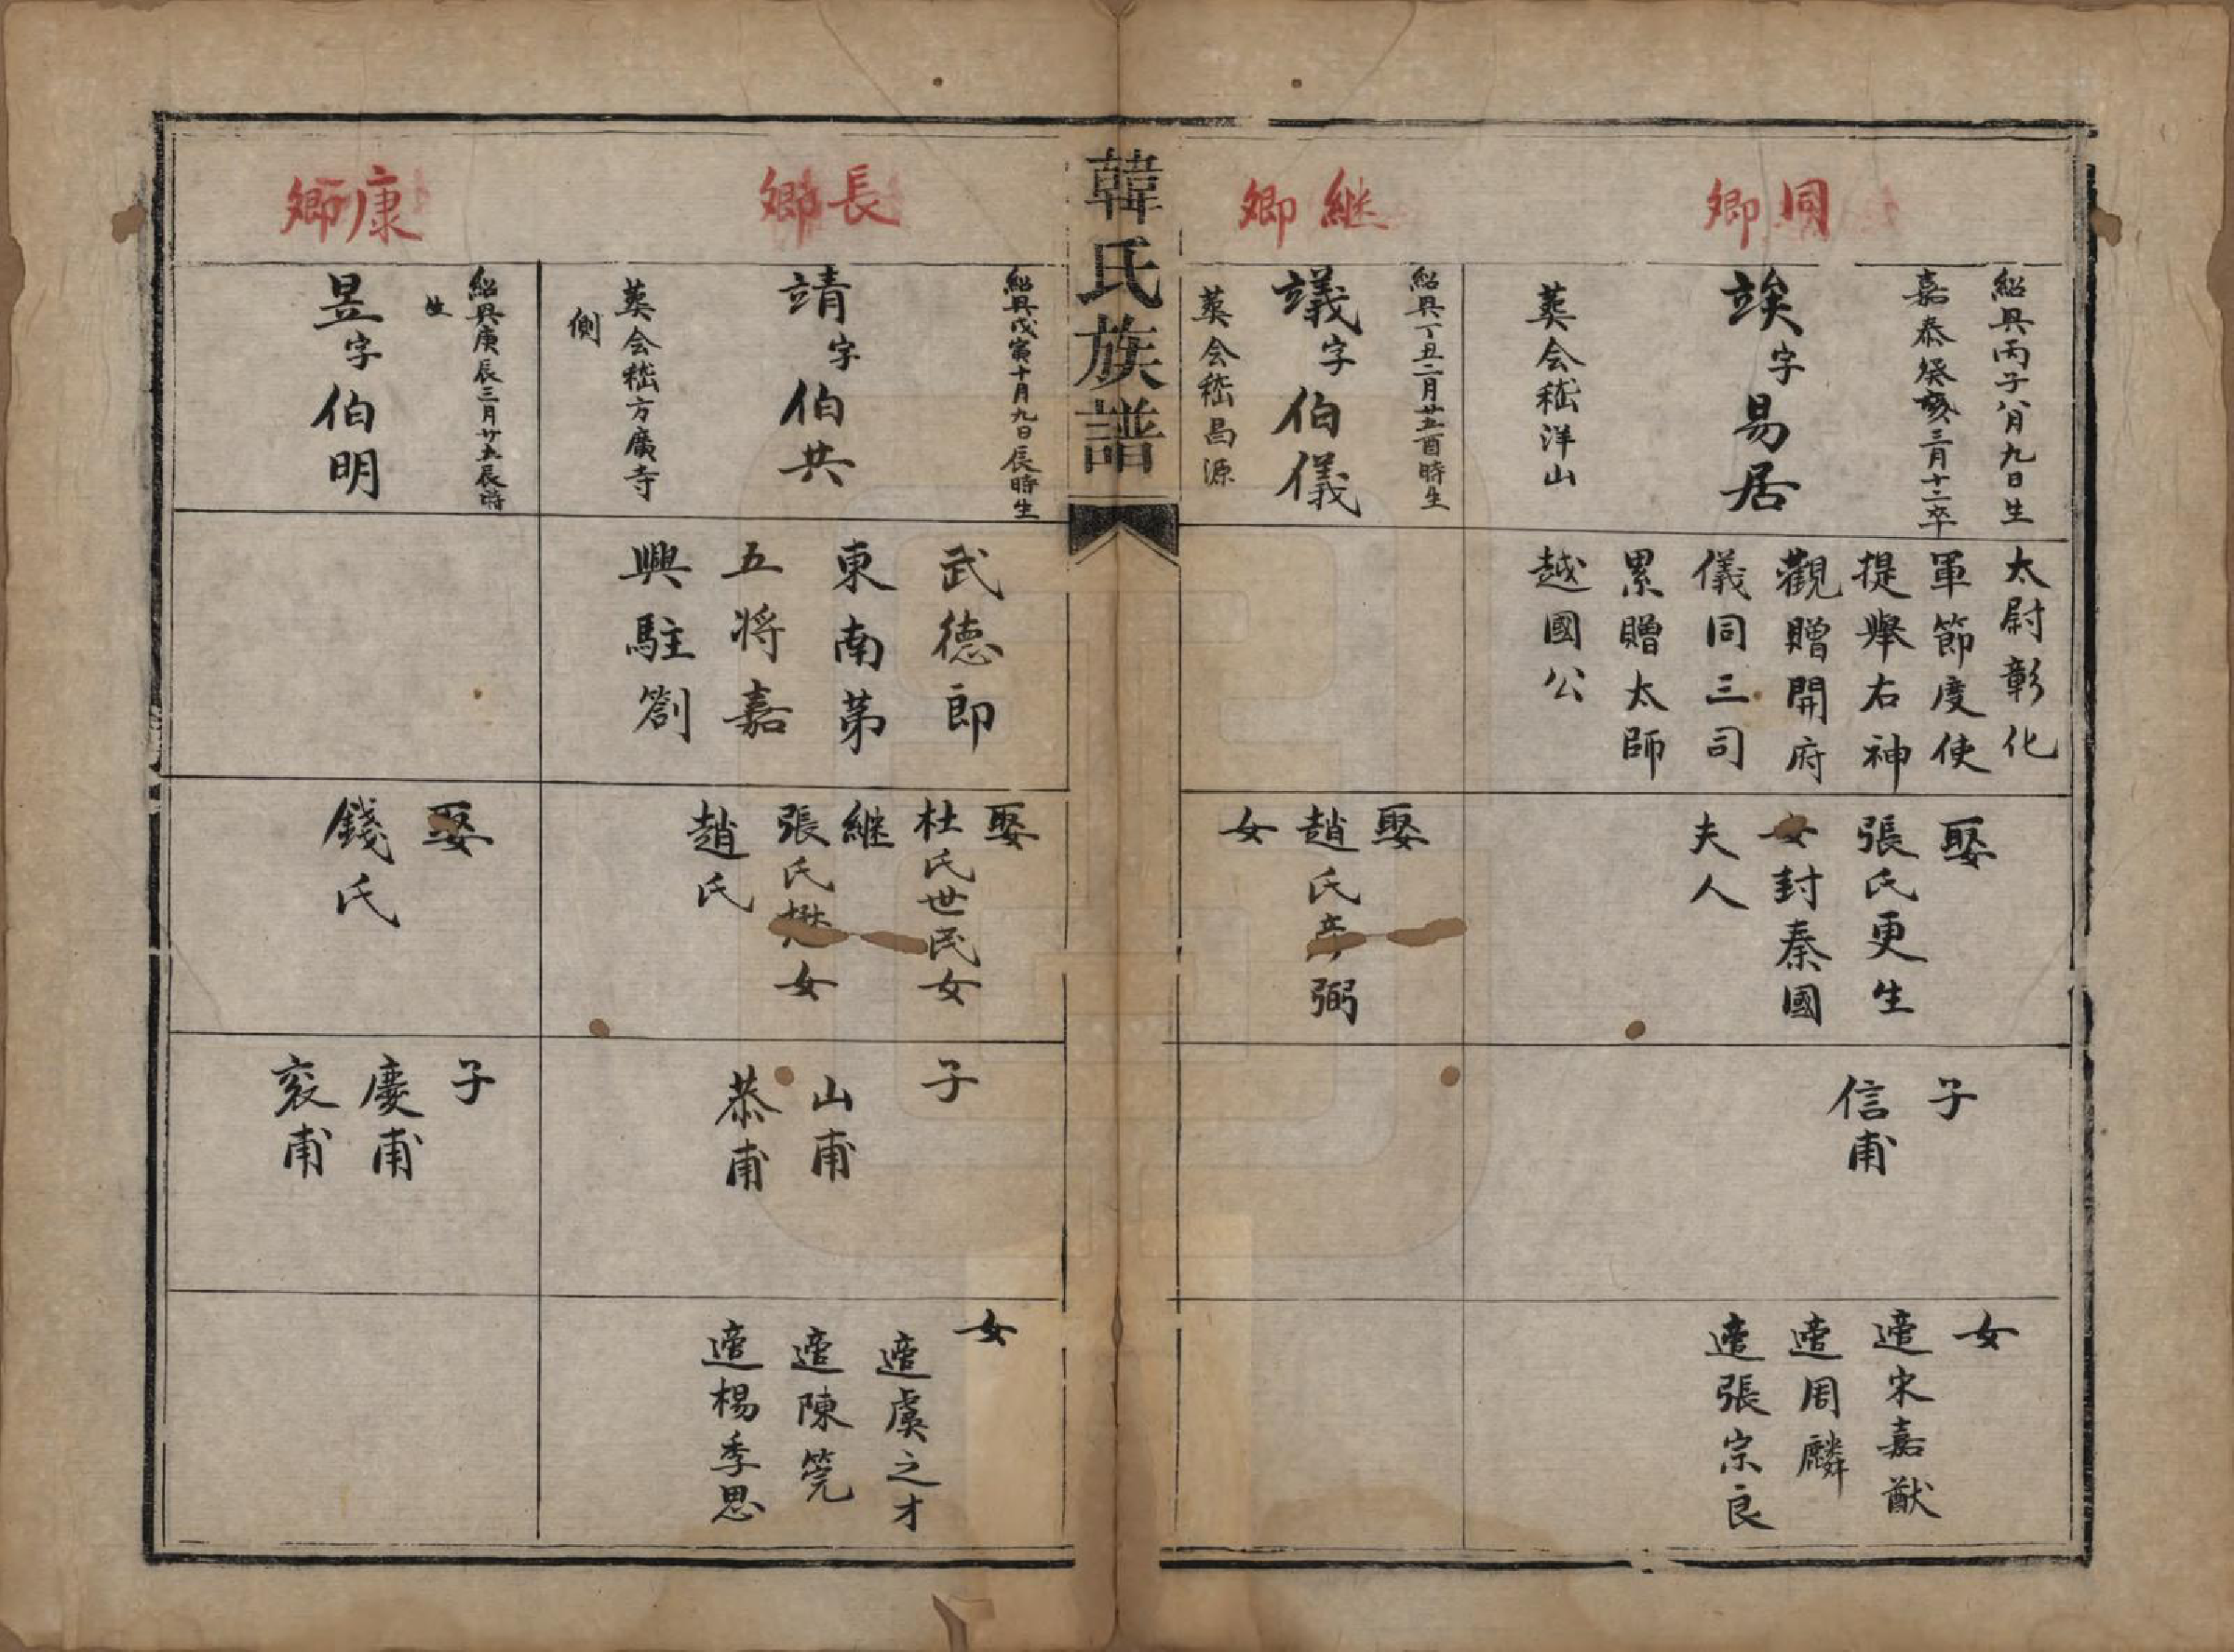 同卿
紹興丙子八月九日生
嘉泰癸亥三月十二卒
竢字易居
葬会嵇洋山
太尉彰化
軍節度使
提舉右神
觀贈開府
儀同三司
累贈太師
越國公
娶
張氏更生
女封秦國
夫人
子
信甫
女
適宋嘉猷
適周麟
適張宗良
継卿
紹興丁丑二月廿五酉時生
議字伯儀
葬会嵇昌源
娶
趙氏彦弼
女
韓氏族譜
長卿
紹興戊寅十月九日辰時生
靖字伯共
葬会嵇方廣寺
側
武德郎
東南苐
五将嘉
興駐劄
娶
杜氏世民女
継
張氏懋女
趙氏
子
山甫
恭甫
女
適虞之才
適陳筦
適楊季思
康卿
紹興庚辰三月廿五辰時
生
昱字伯明
娶
錢氏
子
慶甫
衮甫